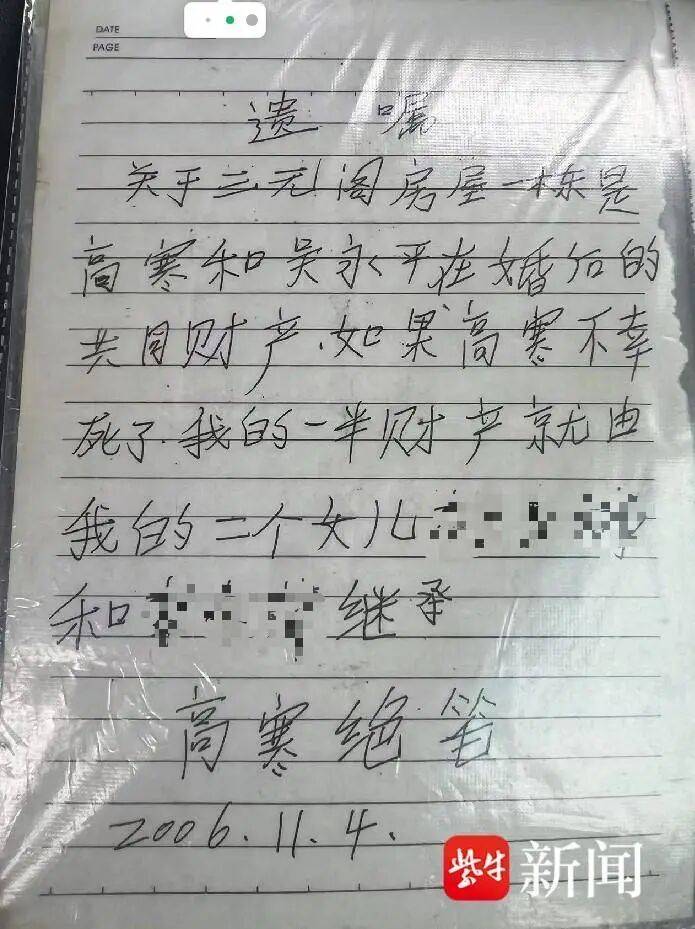 DATE
PAGE
遗嘱
关于三元阁房屋一栋是
高寒和吴永平在婚后的
共同财产.如果高寒不幸
死了.我的一半财产就由
我的二个女儿
和
继承
高寒绝笔
2006.11.4.
紫牛新闻